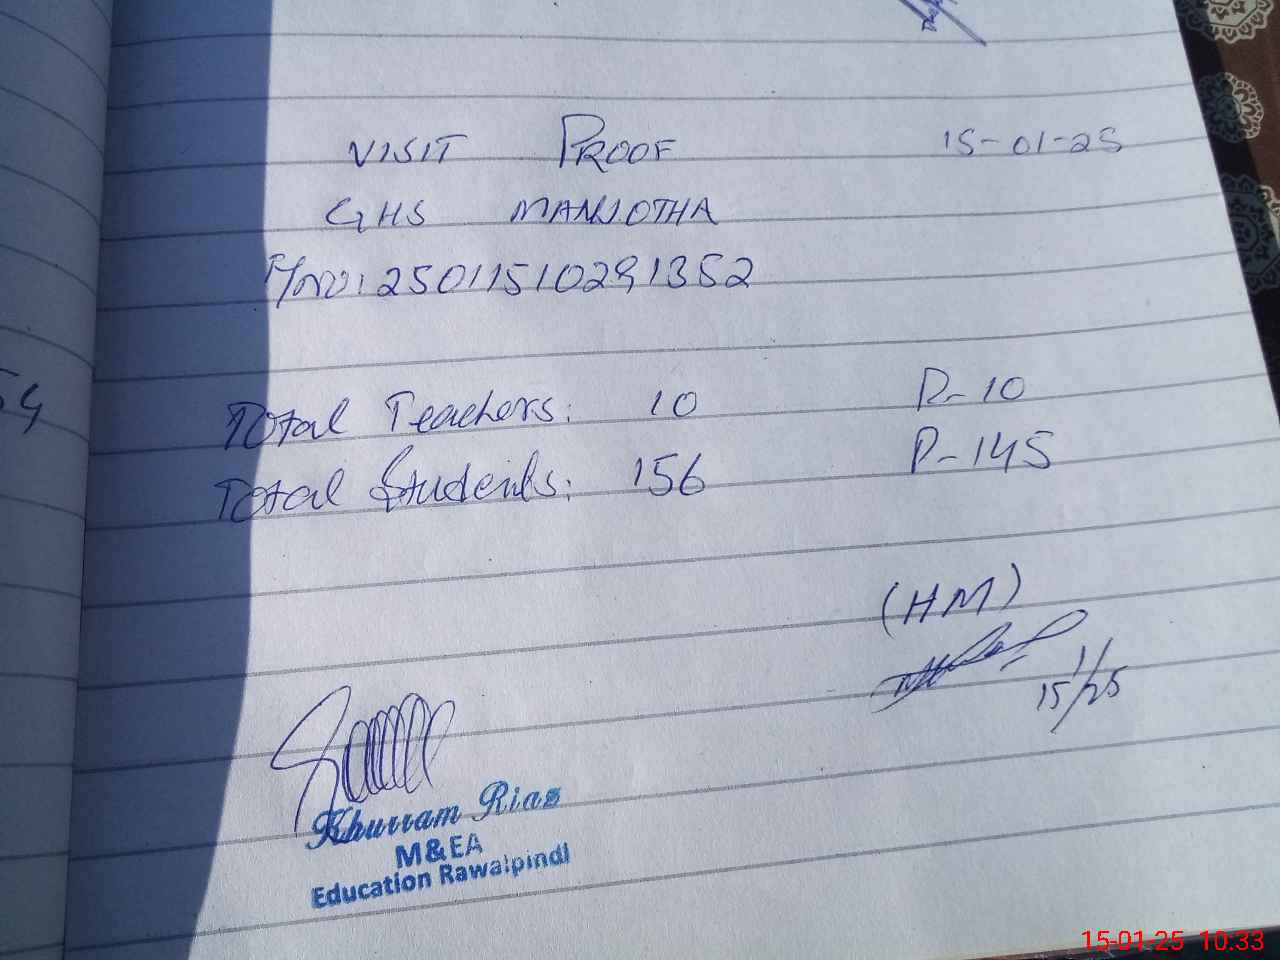 VISIT PROOF 15-01-25
GHS MANJOTHA
F/NO: 25011510291352
Total Teachers: 10 P-10
Total Students: 156 P-145
(HM)
15/1/25
Khurram Riaz
M&EA
Education Rawalpindi
54
15-01-25 10:33